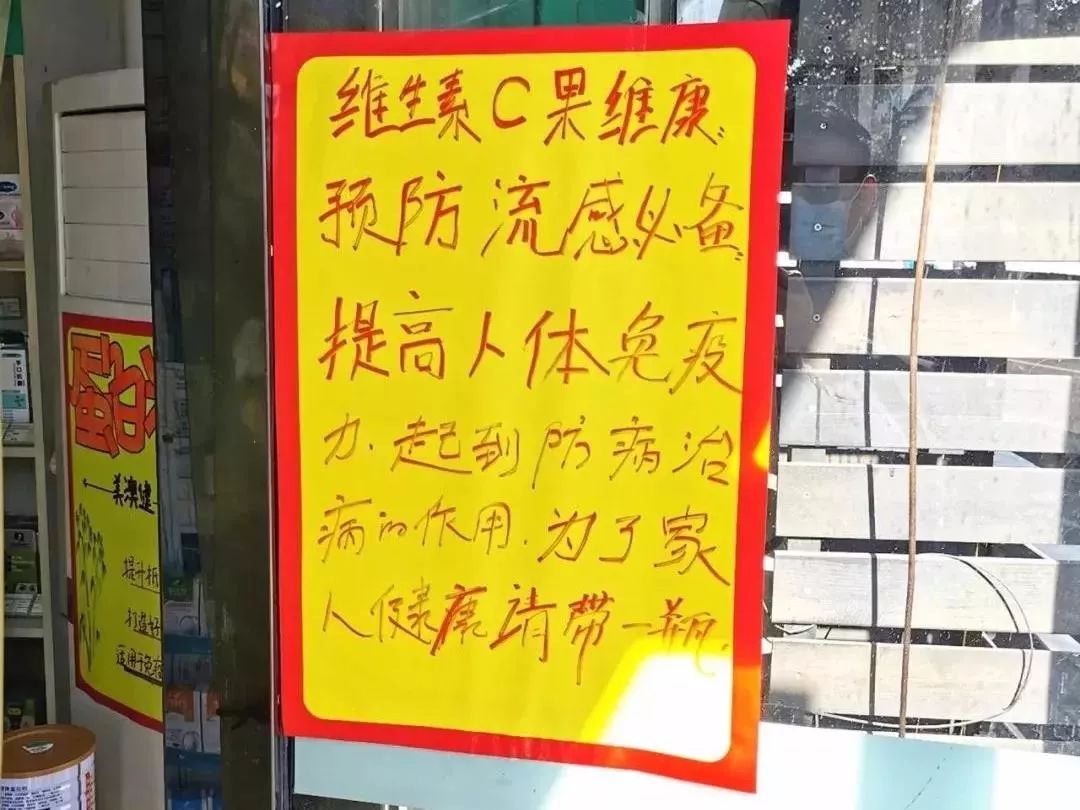 维生素C果维康
预防流感必备
提高人体免疫
力.起到防病治
病的作用.为了家
人健康请带一瓶.
蛋白
美澳健
提升抵
打造好
适用于免疫